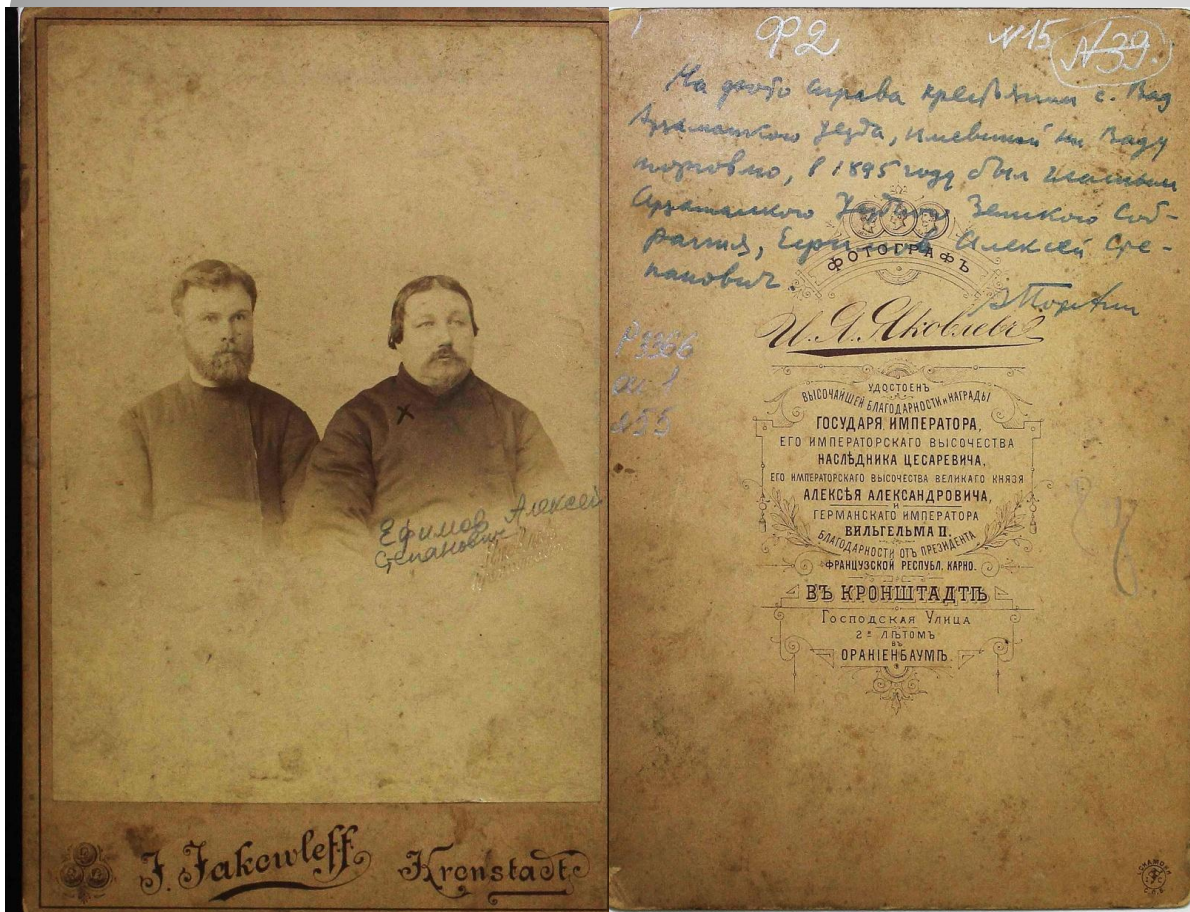 Ефимов Алексей
Степанович
J. Jakowleff
Kronstadt
Ф2
№15
№39.
На фото справа крестьянин с. Вад
Арзамасского уезда, имевший на Ваду
торговлю, в 1895 году был гласным
Арзамасского Уездного Земского Соб-
рания, Ефимов Алексей Сте-
панович.
ФОТОГРАФЪ
И. Я. Яковлевъ
Р3366
оп. 1
УДОСТОЕНЪ
ВЫСОЧАЙШЕЙ БЛАГОДАРНОСТИ и НАГРАДЫ
ГОСУДАРЯ ИМПЕРАТОРА,
ЕГО ИМПЕРАТОРСКАГО ВЫСОЧЕСТВА
НАСЛѢДНИКА ЦЕСАРЕВИЧА,
ЕГО ИМПЕРАТОРСКАГО ВЫСОЧЕСТВА ВЕЛИКАГО КНЯЗЯ
АЛЕКСѢЯ АЛЕКСАНДРОВИЧА,
И
ГЕРМАНСКАГО ИМПЕРАТОРА
ВИЛЬГЕЛЬМА II.
БЛАГОДАРНОСТИ ОТЪ ПРЕЗИДЕНТА
ФРАНЦУЗСКОЙ РЕСПУБЛ. КАРНО.
ВЪ КРОНШТАДТѢ
Господская Улица
2е ЛѢТОМЪ
ВЪ
ОРАНІЕНБАУМѢ.